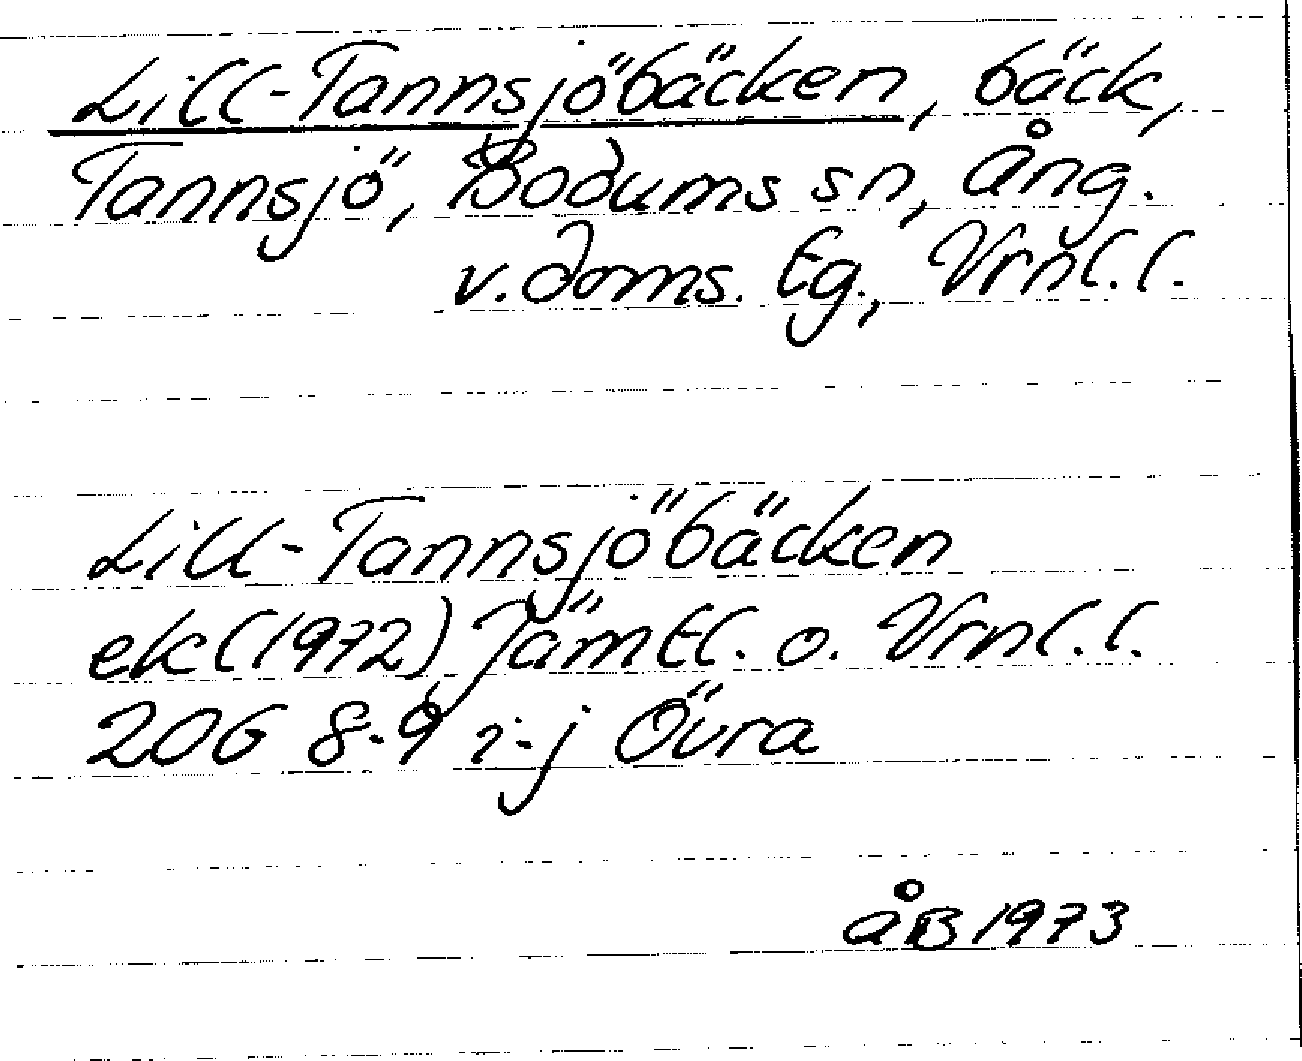 Lill-Tannsjöbäcken, bäck,
Tannsjö, Bodums sn, Ång.
v. doms. tg., Vrnl. l.
Lill-Tannsjöbäcken
ek (1972) Jämtl. o. Vrnl. l.
20G 8-9 i-j Övra
åB 1973